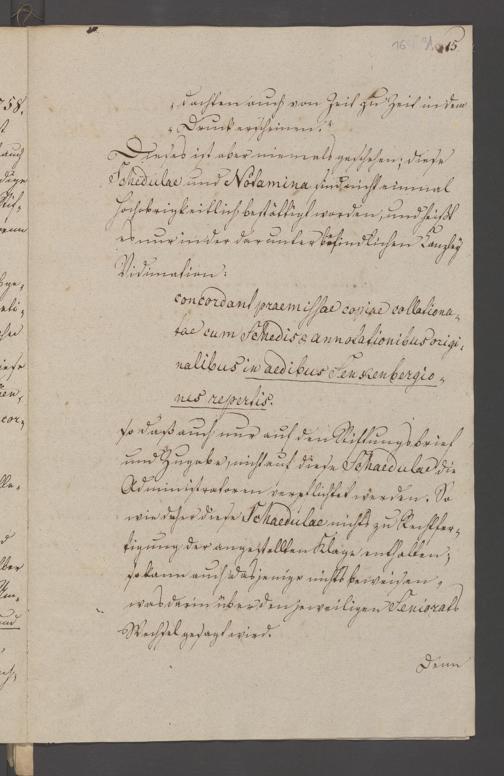 15.
„dachten auch von Zeit zu Zeit in dem
„Druck erscheinen.“
Dieses ist aber niemals geschehen; diese
Schedulae und Notamina sind nicht einmal
hochobrigkeitlich bestättigt worden, und heißt
es nur in der darunter befindlichen Kanzley
Vidimation:
concordant praemissae copiae collationa-
tae cum Schedis & annotationibus origi-
nalibus in aedibus Senkenbergio-
nis repertis.
so daß auch nur auf den Stiftungsbrief
und Zugabe, nicht auf diese Schaedulae die
Administratoren verpflichtet werden. So
wie daher diese Schaedulae nichts zu Rechtfer-
tigung der angestellten Klage enthalten;
so kann auch dasjenige nichts beweisen,
was darin über den jeweiligen Seniorats
Wechsel gesagt wird.
Denn